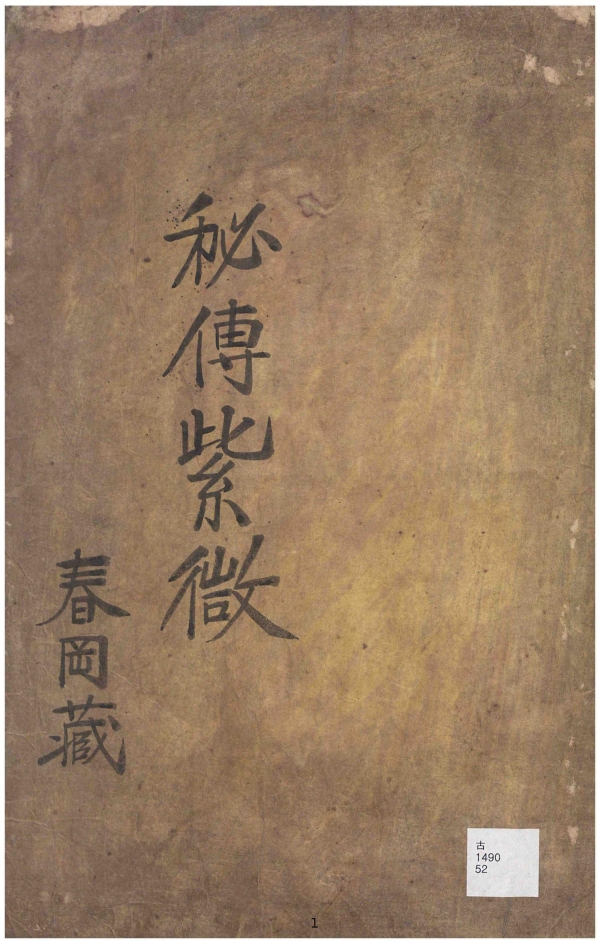 秘傳紫微
春岡藏
古
1490
52
1